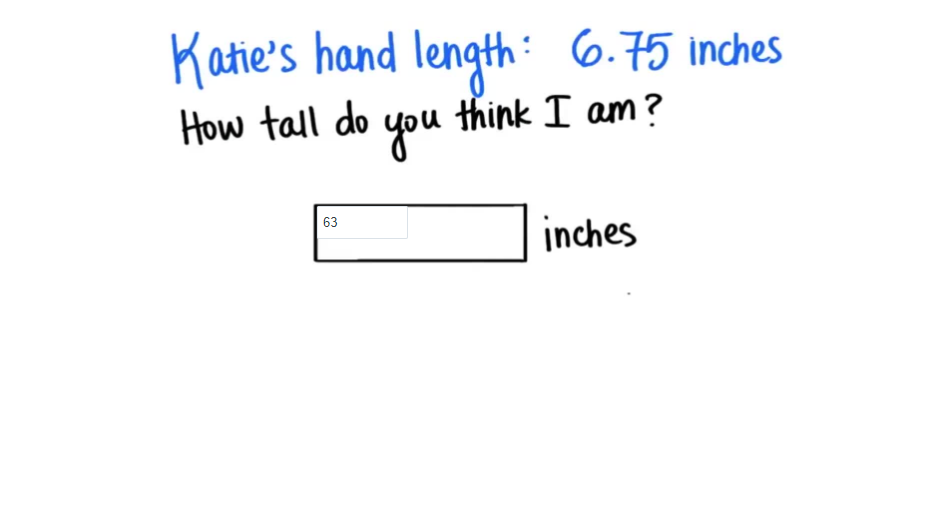 Katie's hand length: 6.75 inches
How tall do you think I am?
63 inches